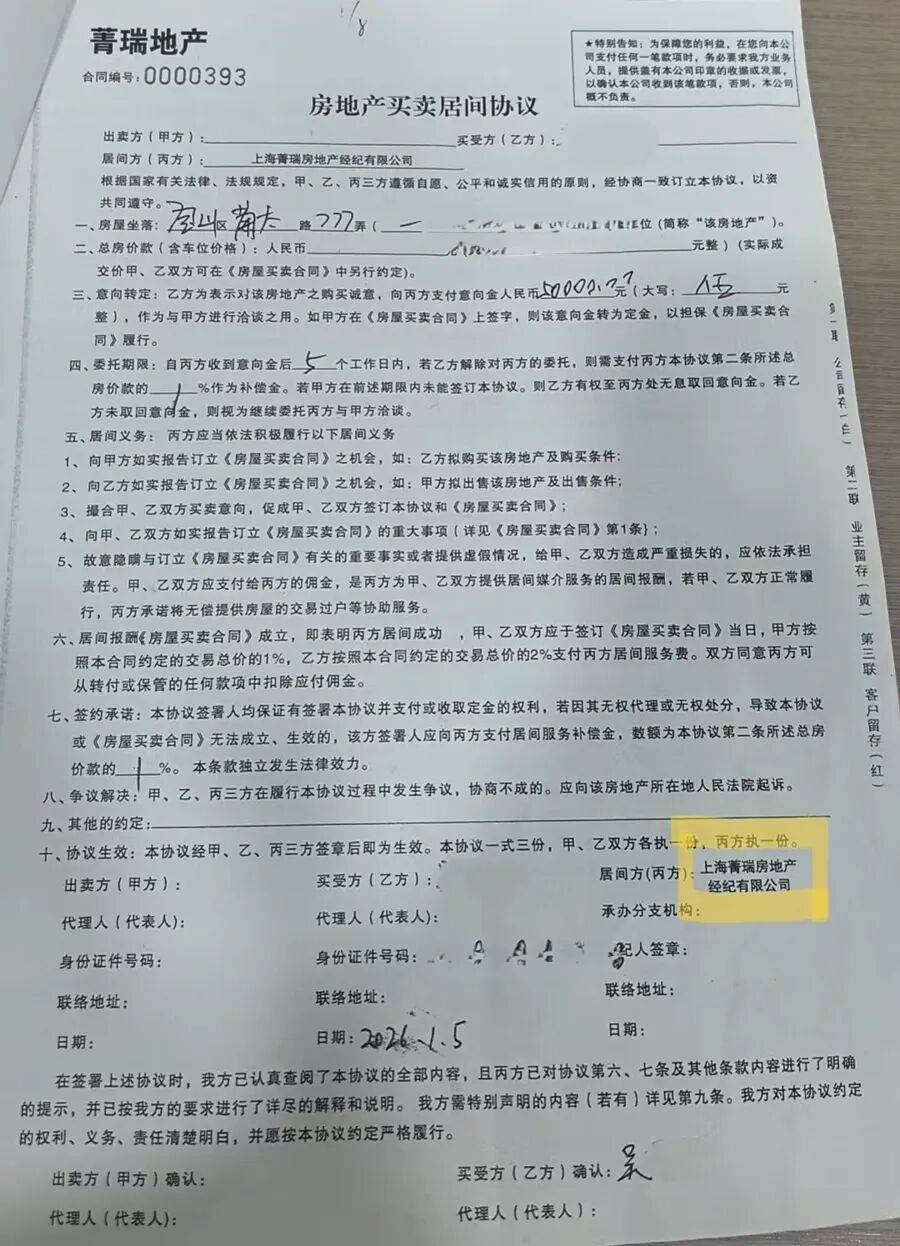 菁瑞地产
合同编号:0000393
★特别告知：为保障您的利益，在您向本公
司支付任何一笔款项时，务必要求我方业务
人员，提供盖有本公司印章的收据或发票，
以确认本公司收到该笔款项，否则，本公司
概不负责。
房地产买卖居间协议
出卖方（甲方）: 买受方（乙方）:
居间方（丙方）: 上海菁瑞房地产经纪有限公司
根据国家有关法律、法规规定，甲、乙、丙三方遵循自愿、公平和诚实信用的原则，经协商一致订立本协议，以资
共同遵守。
一、房屋坐落: 宝山区 路777弄（ 位（简称“该房地产”）。
二、总房价款（含车位价格）: 人民币 元整）（实际成
交价甲、乙双方可在《房屋买卖合同》中另行约定）。
三、意向转定：乙方为表示对该房地产之购买诚意，向丙方支付意向金人民币50000 元（大写: 伍 元
整），作为与甲方进行洽谈之用。如甲方在《房屋买卖合同》上签字，则该意向金转为定金，以担保《房屋买卖合
同》履行。
四、委托期限：自丙方收到意向金后 5 个工作日内，若乙方解除对丙方的委托，则需支付丙方本协议第二条所述总
房价款的 1 %作为补偿金。若甲方在前述期限内未能签订本协议。则乙方有权至丙方处无息取回意向金。若乙
方未取回意向金，则视为继续委托丙方与甲方洽谈。
五、居间义务: 丙方应当依法积极履行以下居间义务
1、向甲方如实报告订立《房屋买卖合同》之机会，如: 乙方拟购买该房地产及购买条件;
2、向乙方如实报告订立《房屋买卖合同》之机会，如: 甲方拟出售该房地产及出售条件;
3、撮合甲、乙双方买卖意向，促成甲、乙双方签订本协议和《房屋买卖合同》;
4、向甲、乙双方如实报告订立《房屋买卖合同》的重大事项（详见《房屋买卖合同》第1条);
5、故意隐瞒与订立《房屋买卖合同》有关的重要事实或者提供虚假情况，给甲、乙双方造成严重损失的，应依法承担
责任。甲、乙双方应支付给丙方的佣金，是丙方为甲、乙双方提供居间媒介服务的居间报酬，若甲、乙双方正常履
行，丙方承诺将无偿提供房屋的交易过户等协助服务。
六、居间报酬《房屋买卖合同》成立，即表明丙方居间成功 ，甲、乙双方应于签订《房屋买卖合同》当日，甲方按
照本合同约定的交易总价的1%，乙方按照本合同约定的交易总价的2%支付丙方居间服务费。双方同意丙方可
从转付或保管的任何款项中扣除应付佣金。
七、签约承诺: 本协议签署人均保证有签署本协议并支付或收取定金的权利，若因其无权代理或无权处分，导致本协议
或《房屋买卖合同》无法成立、生效的，该方签署人应向丙方支付居间服务补偿金，数额为本协议第二条所述总房
价款的 1 %。本条款独立发生法律效力。
八、争议解决: 甲、乙、丙三方在履行本协议过程中发生争议，协商不成的。应向该房地产所在地人民法院起诉。
九、其他的约定:
十、协议生效: 本协议经甲、乙、丙三方签章后即为生效。本协议一式三份，甲、乙双方各执一份，丙方执一份。
出卖方（甲方）: 买受方（乙方）: 居间方(丙方): 上海菁瑞房地产
经纪有限公司
代理人（代表人）: 代理人（代表人）: 承办分支机构:
身份证件号码: 身份证件号码: 纪人签章:
联络地址: 联络地址: 联络地址:
日期: 日期: 2026.1.5 日期:
在签署上述协议时，我方已认真查阅了本协议的全部内容，且丙方已对协议第六、七条及其他条款内容进行了明确
的提示，并已按我方的要求进行了详尽的解释和说明。我方需特别声明的内容（若有）详见第九条。我方对本协议约定
的权利、义务、责任清楚明白，并愿按本协议约定严格履行。
出卖方（甲方）确认: 买受方（乙方）确认: 吴
代理人（代表人）: 代理人（代表人）:
公司留存（白） 第二联 业主留存（黄） 第三联 客户留存（红）